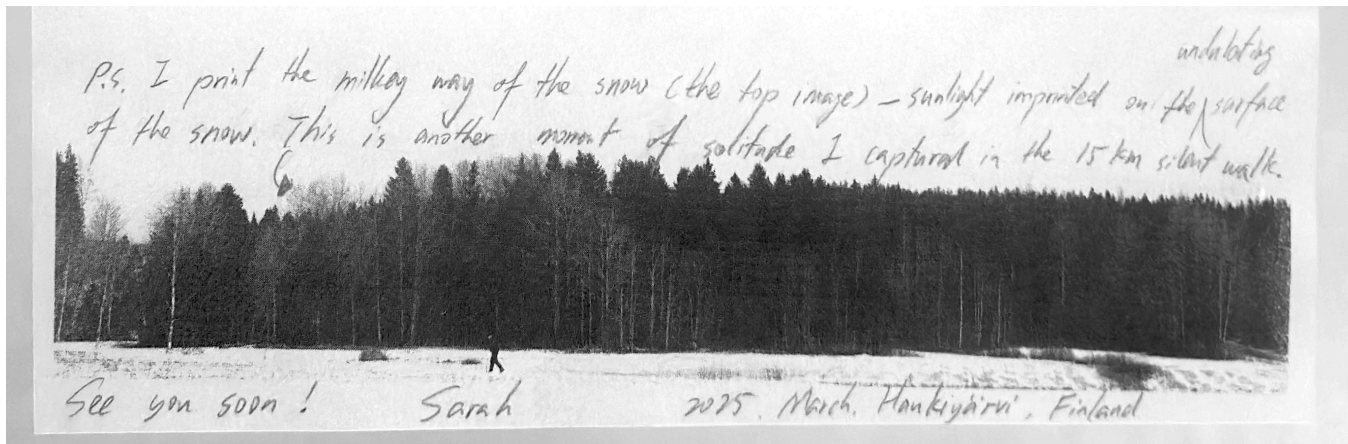 P.S. I print the milkey way of the snow (the top image) – sunlight imprinted on the undulating surface
of the snow. This is another moment of solitude I captured in the 15 km silent walk.
See you soon! Sarah 2025. March. Haukijärvi, Finland